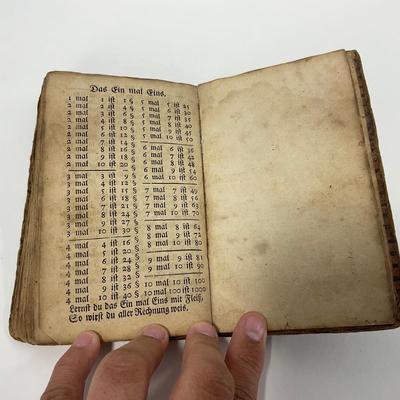 Das Ein mal Eins.
1 mal 1 ist 1
2 mal 2 ist 4
2 mal 3 ist 6
2 mal 4 ist 8
2 mal 5 ist 10
2 mal 6 ist 12
2 mal 7 ist 14
2 mal 8 ist 16
2 mal 9 ist 18
2 mal 10 ist 20
3 mal 3 ist 9
3 mal 4 ist 12
3 mal 5 ist 15
3 mal 6 ist 18
3 mal 7 ist 21
3 mal 8 ist 24
3 mal 9 ist 27
3 mal 10 ist 30
4 mal 4 ist 16
4 mal 5 ist 20
4 mal 6 ist 24
4 mal 7 ist 28
4 mal 8 ist 32
4 mal 9 ist 36
4 mal 10 ist 40
5 mal 5 ist 25
5 mal 6 ist 30
5 mal 7 ist 35
5 mal 8 ist 40
5 mal 9 ist 45
5 mal 10 ist 50
6 mal 6 ist 36
6 mal 7 ist 42
6 mal 8 ist 48
6 mal 9 ist 54
6 mal 10 ist 60
7 mal 7 ist 49
7 mal 8 ist 56
7 mal 9 ist 63
7 mal 10 ist 70
8 mal 8 ist 64
8 mal 9 ist 72
8 mal 10 ist 80
9 mal 9 ist 81
9 mal 10 ist 90
10 mal 10 ist 100
10 mal 100 ist 1000
Lernst du das Ein mal Eins mit Fleiß,
So wirst du aller Rechnung weis.